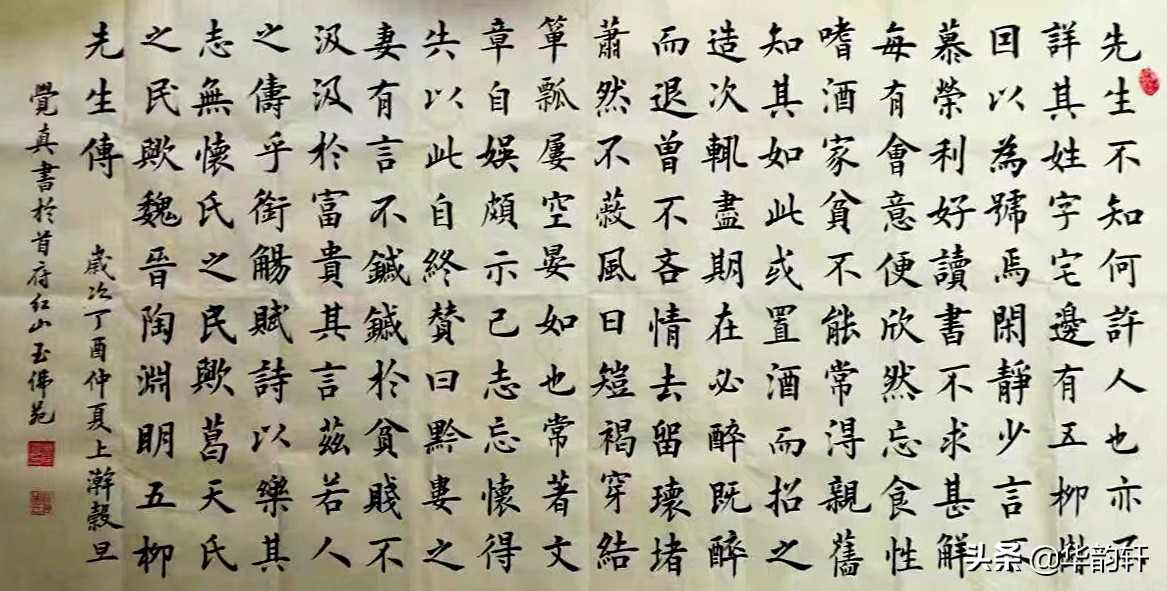 先生不知何許人也亦不
詳其姓字宅邊有五柳樹
因以為號焉閑靜少言不
慕榮利好讀書不求甚解
每有會意便欣然忘食性
嗜酒家貧不能常得親舊
知其如此或置酒而招之
造次輒盡期在必醉既醉
而退曾不吝情去留環堵
蕭然不蔽風日短褐穿結
簞瓢屢空晏如也常著文
章自娛頗示己志忘懷得
失以此自終贊曰黔婁之
妻有言不鍼鍼於貧賤不
汲汲於富貴其言茲若人
之儔乎銜觴賦詩以樂其
志無懷氏之民歟葛天氏
之民歟魏晉陶淵明五柳
先生傳
歲次丁酉仲夏上澣穀旦
覺真書於首府紅山玉佛苑
头条 @华韵轩